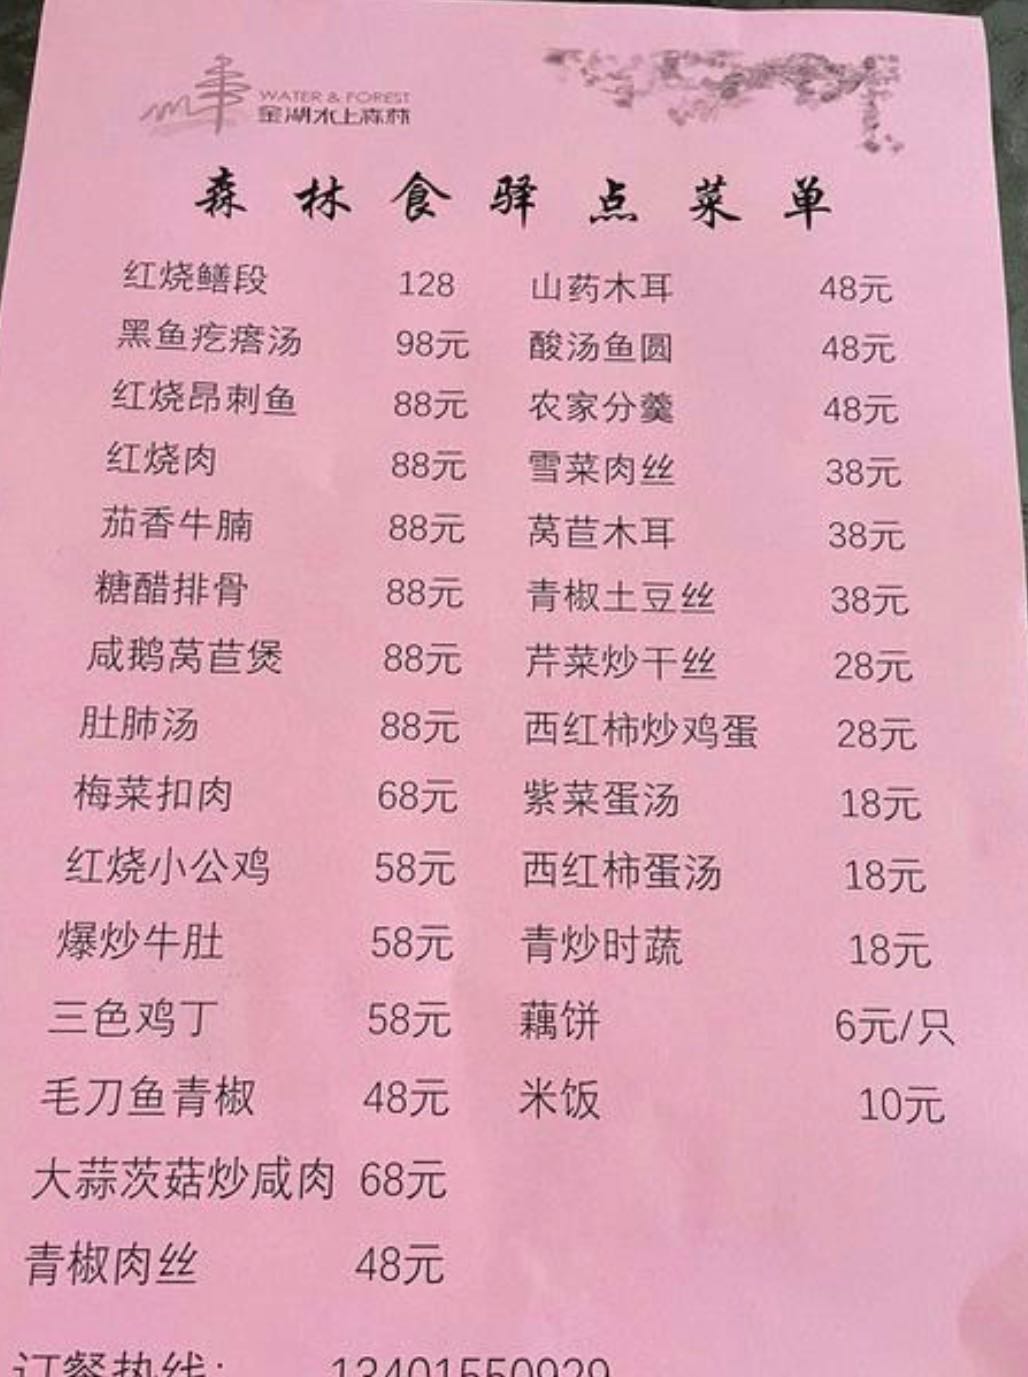 WATER & FOREST
金湖水上森林
森林食驿点菜单
红烧鳝段 128 山药木耳 48元
黑鱼疙瘩汤 98元 酸汤鱼圆 48元
红烧昂刺鱼 88元 农家分羹 48元
红烧肉 88元 雪菜肉丝 38元
茄香牛腩 88元 莴苣木耳 38元
糖醋排骨 88元 青椒土豆丝 38元
咸鹅莴苣煲 88元 芹菜炒干丝 28元
肚肺汤 88元 西红柿炒鸡蛋 28元
梅菜扣肉 68元 紫菜蛋汤 18元
红烧小公鸡 58元 西红柿蛋汤 18元
爆炒牛肚 58元 青炒时蔬 18元
三色鸡丁 58元 藕饼 6元/只
毛刀鱼青椒 48元 米饭 10元
大蒜茨菇炒咸肉 68元
青椒肉丝 48元
订餐热线: 13401550929